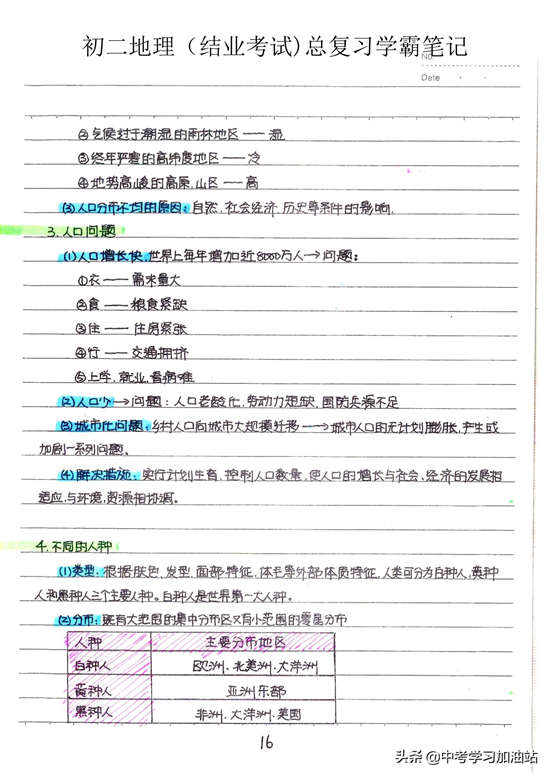 初二地理（结业考试)总复习学霸笔记
No.
Date
②气候过于潮湿的雨林地区——湿
③终年严寒的高纬度地区——冷
④地势高峻的高原,山区——高
(3)人口分布不均的原因:自然,社会经济,历史等条件的影响.
3.人口问题
(1)人口增长快,世界上每年增加近8000万人→问题:
①衣——需求量大
②食——粮食紧缺
③住——住房紧张
④行——交通拥挤
⑤上学,就业,看病难
(2)人口少→问题:人口老龄化,劳动力短缺,国防兵源不足
(3)城市化问题:乡村人口向城市大规模迁移→城市人口的无计划膨胀,产生或
加剧一系列问题.
(4)解决措施:实行计划生育,控制人口数量,使人口的增长与社会、经济的发展相
适应,与环境,资源相协调。
4.不同的人种
(1)类型:根据肤色,发型,面部特征,体毛等外部体质特征,人类可分为白种人,黄种
人和黑种人三个主要人种。白种人是世界第一大人种。
(2)分布:既有大范围的集中分布区又有小范围的零星分布
人种 主要分布地区
白种人 欧洲、北美洲、大洋洲
黄种人 亚洲东部
黑种人 非洲、大洋洲、美国
16
头条@中考学习加油站